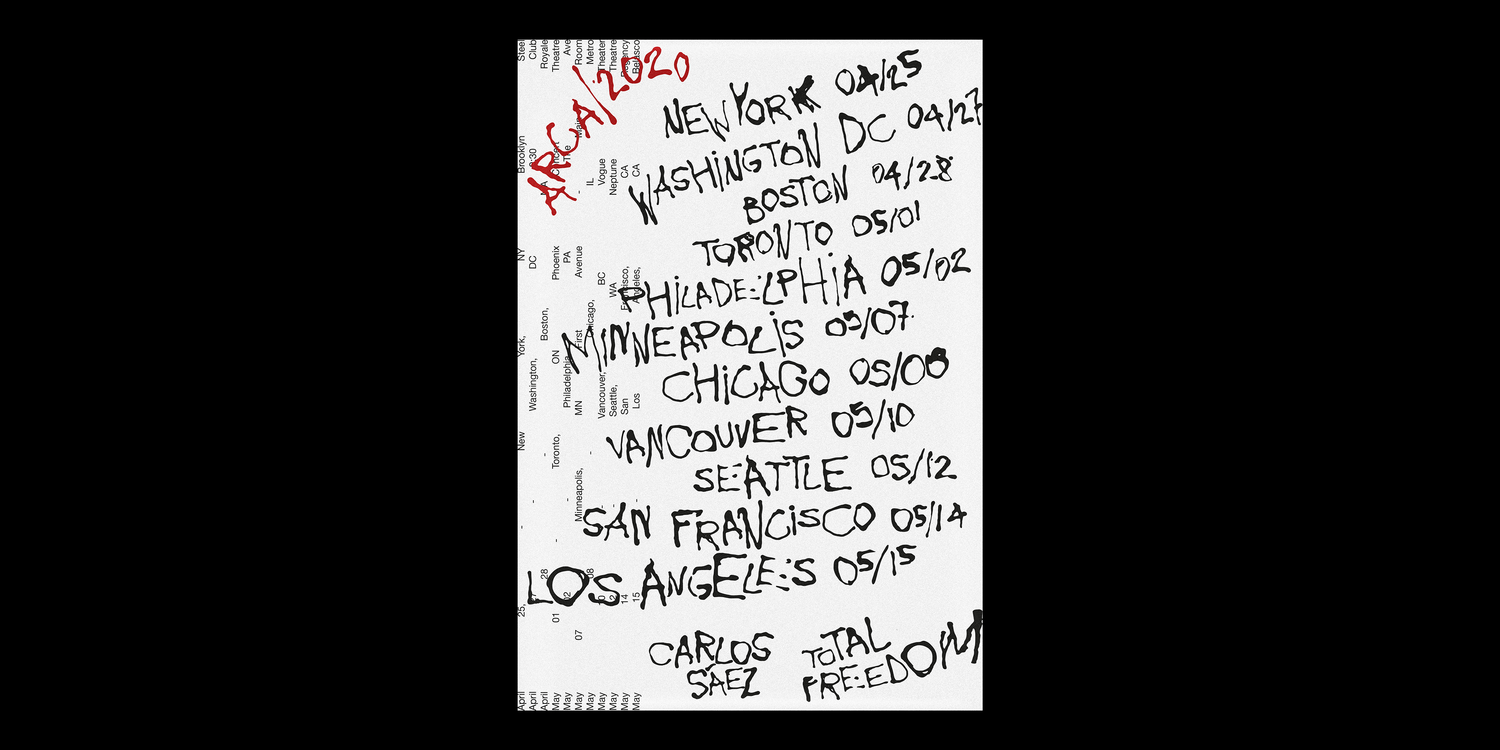 ARCA/2020
NEW YORK 04/25
WASHiNGTON DC 04/27
BOSTON 04/28
TORONTO 05/01
PHiLADELPHiA 05/02
MINNEAPOLiS 05/07
CHiCAGO 05/08
VANCOUVER 05/10
SEATTLE 05/12
SAN FRANCiSCO 05/14
LOS ANGELES 05/15
CARLOS SÁEZ
TOTAL FREEDOM
April 25, - New York, NY Brooklyn Steel
April 27 - Washington, DC 9:30 Club
April 28 - Boston, MA Royale
May 01 - Toronto, ON Phoenix Concert Theatre
May 02 - Philadelphia, PA The Ave
May 07 Minneapolis, MN First Avenue - Main Room
May 08 - Chicago, IL Metro
May 10 - Vancouver, BC Vogue Theater
May 12 - Seattle, WA Neptune Theatre
May 14 San Francisco, CA Regency
May 15 - Los Angeles, CA Belasco